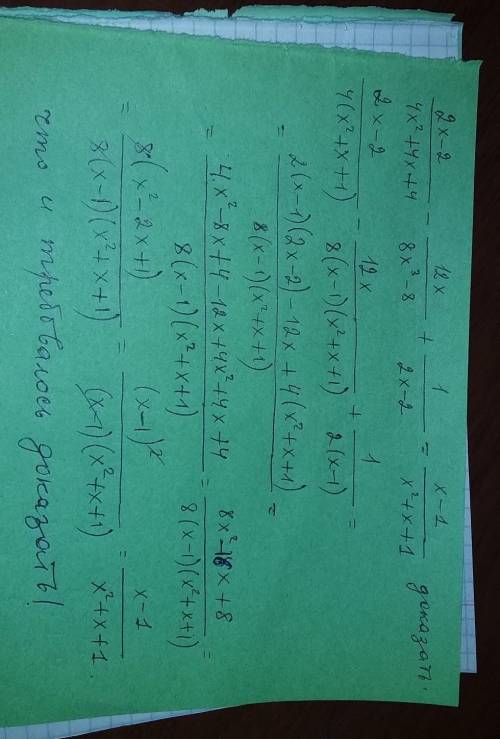 (2x-2)/(4x²+4x+4) - 12x/(8x³-8) + 1/(2x-2) = (x-1)/(x²+x+1) доказать!
(2x-2)/(4(x²+x+1)) - 12x/(8(x-1)(x²+x+1)) + 1/(2(x-1)) =
= (2(x-1)(2x-2)-12x+4(x²+x+1))/(8(x-1)(x²+x+1)) =
= (4x²-8x+4-12x+4x²+4x+4)/(8(x-1)(x²+x+1)) = (8x²-16x+8)/(8(x-1)(x²+x+1)) =
= (8(x²-2x+1))/(8(x-1)(x²+x+1)) = (x-1)²/((x-1)(x²+x+1)) = (x-1)/(x²+x+1).
что и требовалось доказать!